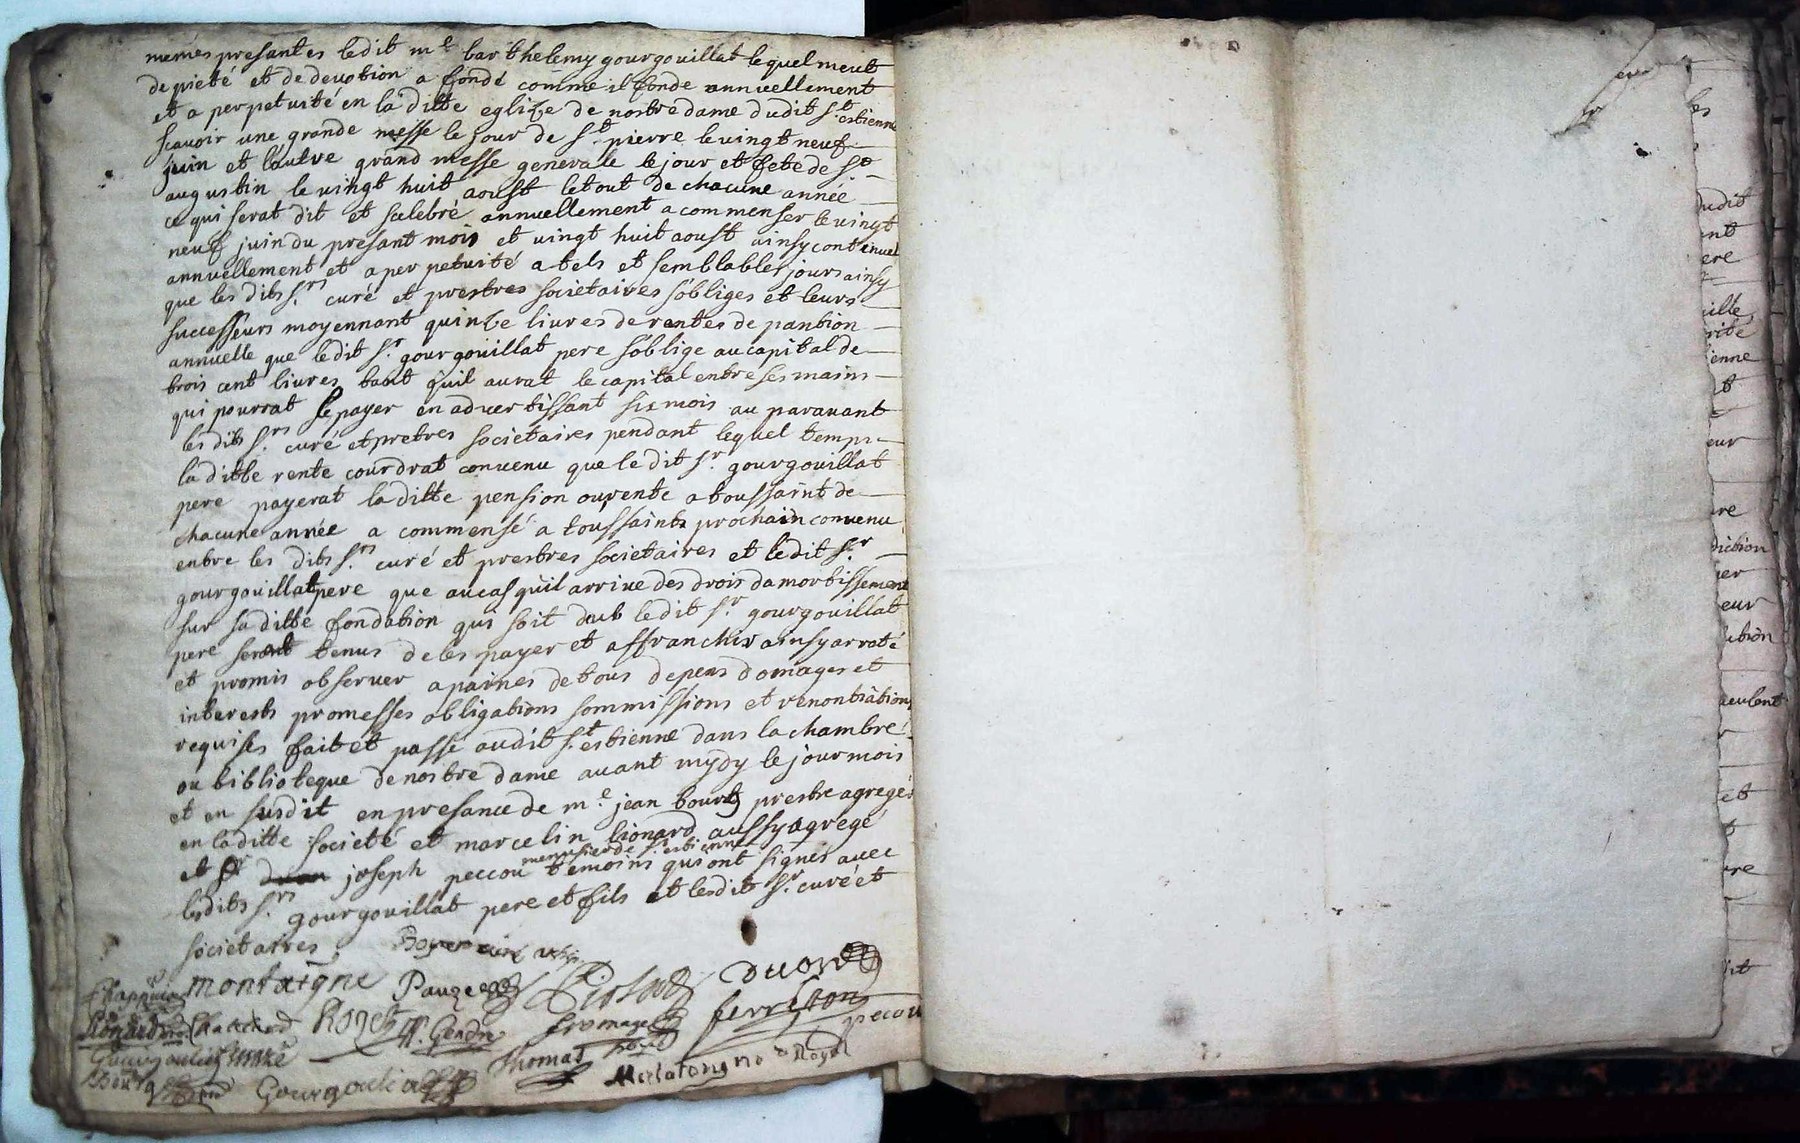 memes presantes ledit m.e barthelemy gourgouillat lequel meut
de pieté et de devotion a fondé comme il fonde annuellement
et a perpetuité en la ditte eglize de nostre dame dudit s.t estienne
scavoir une grande messe le jour de s.t pierre le vingt neuf
juin et lautre grand messe generale le jour et fete de s.t
augustin le vingt huit aoust le tout de chacune année
ce qui serat dit et selebré annuellement a commenser le vingt
neuf juin du presant mois et vingt huit aoust ainsy continuel
annuellement et a perpetuité a tels et semblables jours ainsy
que les dits s.rs curé et prestres societaires sobliges et leurs
successeurs moyennant quinze livres de rentes de pantion
annuelle que ledit s.r gourgouillat pere soblige au capital de
trois cent livres tant quil aurat le capital entre ses mains
qui pourrat le payer en advertissant six mois au paravant
les dits s.rs curé et pretres societaires pendant lequel temps
la ditte rente courdrat convenu que le dit s.r gourgouillat
pere payerat la ditte pension ou rente a toussaint de
chacune année a commensé a toussaints prochain convenu
entre les dits s.rs curé et prestres societaires et ledit s.r
gourgouillat pere que au cas quil arrive des drois damortissement
sur sa ditte fondation qui soit deub ledit s.r gourgouillat
pere serat tenus de les payer et affranchir ainsy arraté
et promis observer a paines de tous depens domages et
interests promesses obligations sommissions et renontiations
requises fait et passé audit s.t estienne dans la chambre
ou biblioteque de nostre dame avant mydy le jour mois
et an susdit en presance de m.e jean bourg prestre agregés
en la ditte societé et marcelin lionard aussy agregé
menusier de s.t estienne
et joseph peccou temoins qui ont signés avec
lesdits s.rs gourgouillat pere et fils et lesdits s.r curé et
societaires
Boyer curé
montaigne Pauze Duon
Chappuis
Royet ff. Gendre fromage ferreston pecou
Thomas
Bourg Gourgouliat Royet
eur
es
dudit
ent
ere
ille
rité
ienne
t
eur
re
diction
er
eur
ution
veulent
r
et
t
re
dit